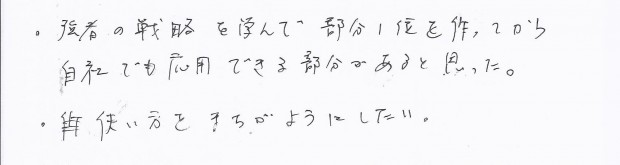 ・強者の戦略を学んで部分1位を作ってから
自社でも応用できる部分があると思った。
・使い方をまちがようにしたい。